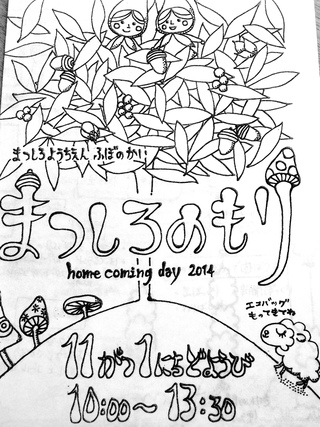 まつしろようちえん ふぼのかい
まつしろのもり
home coming day 2014
エコバッグ
もってきてね
11がつ1にちどようび
10:00〜13:30